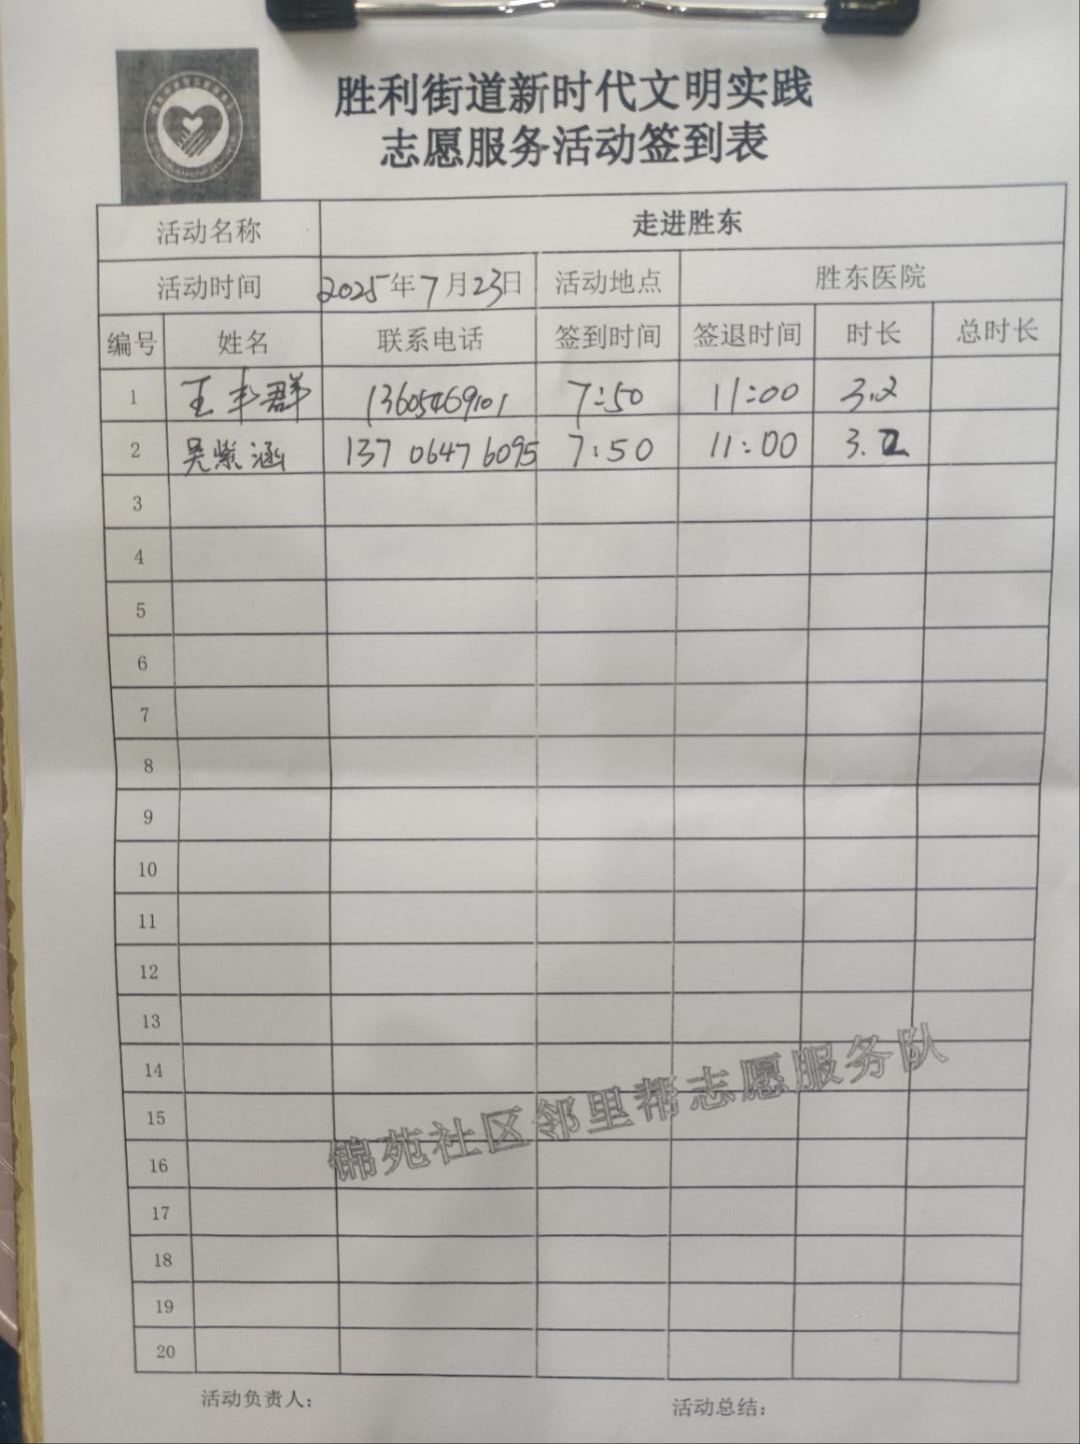 胜利街道新时代文明实践
志愿服务活动签到表
活动名称 走进胜东
活动时间 2025年7月23日 活动地点 胜东医院
编号 姓名 联系电话 签到时间 签退时间 时长 总时长
1 王丰群 13605469101 7:50 11:00 3.2
2 吴紫涵 13706476095 7:50 11:00 3.2
3
4
5
6
7
8
9
10
11
12
13
14
15
16
17
18
19
20
锦苑社区邻里帮志愿服务队
活动负责人: 活动总结: